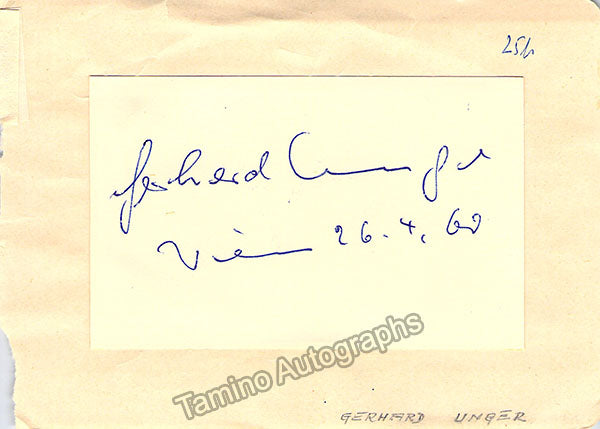 25h
Gerhard Unger
Wien 26.4.60
Tamino Autographs
GERHARD UNGER